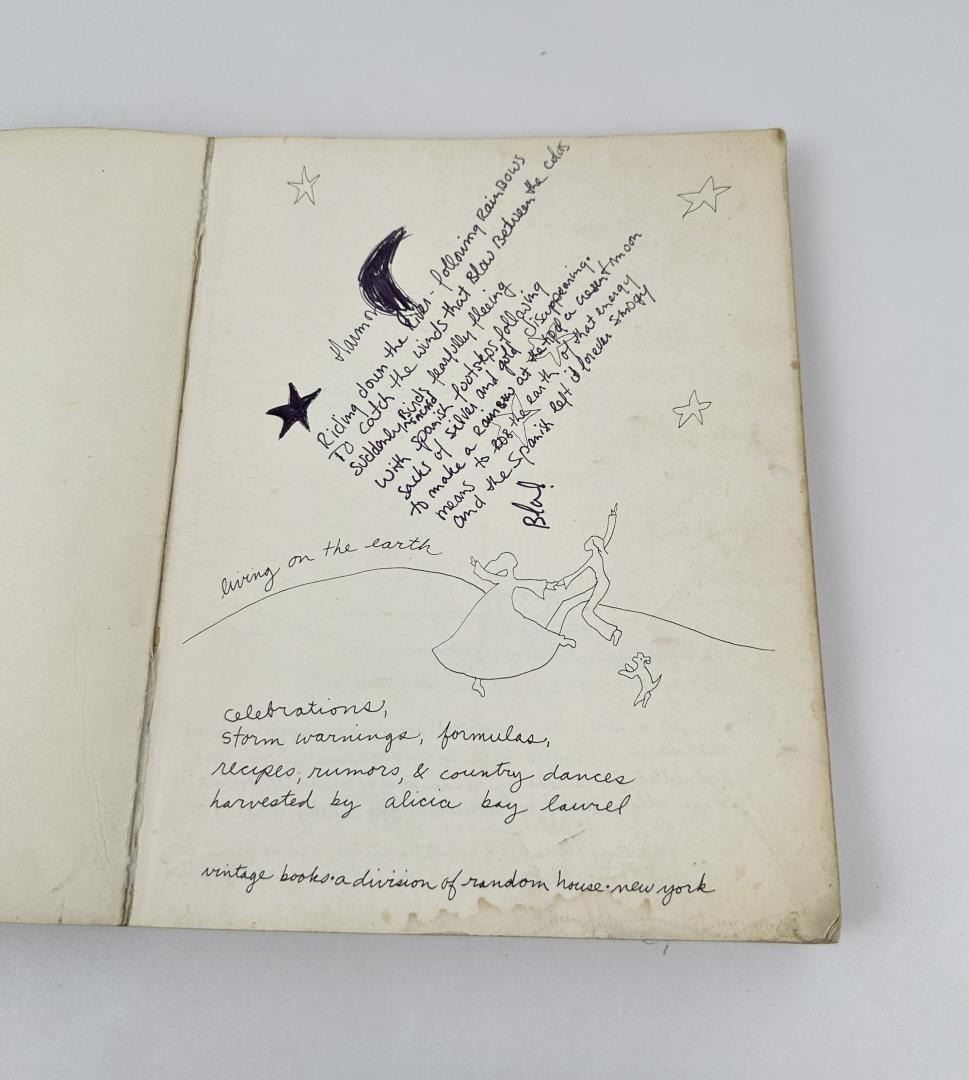 Riding down the River - following Rainbows
To catch the winds that Blow Between the colors
suddenly Birds fearfully fleeing
behind
with Spanish footsteps following
sacks of silver and gold disappearing.
to make a rainbow at the top a cresent moon
means to ROB the earth of that energy
and the Spanish left it forever smogy
Blas!
living on the earth
celebrations,
storm warnings, formulas,
recipes, rumors, & country dances
harvested by alicia bay laurel
vintage books · a division of random house · new york